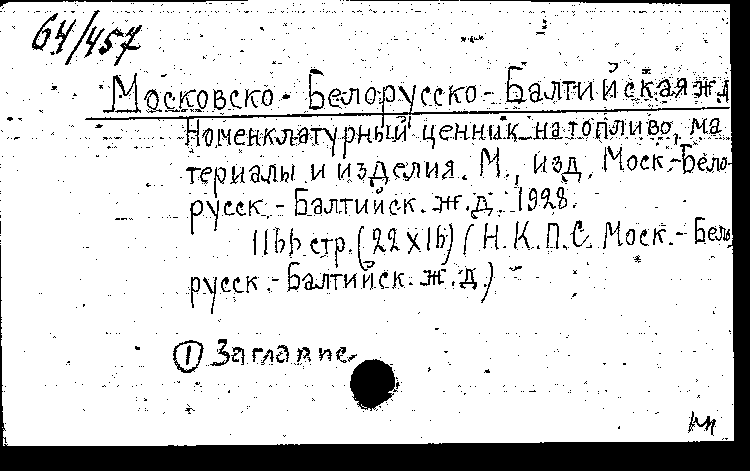 64/457
Московско-Белорусско-Балтийская ж.д
Номенклатурный ценник на топливо, ма
териалы и изделия. М., изд. Моск.-Бело-
русск.-Балтийск. ж.д. 1928.
1166 стр. (22X16) (Н.К.П.С. Моск.-Бело
русск.-Балтийск. ж.д.)
① Заглавие